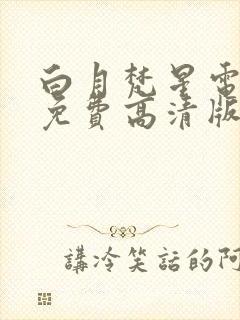 白月梵星電
免費高清版
講冷笑話的阿